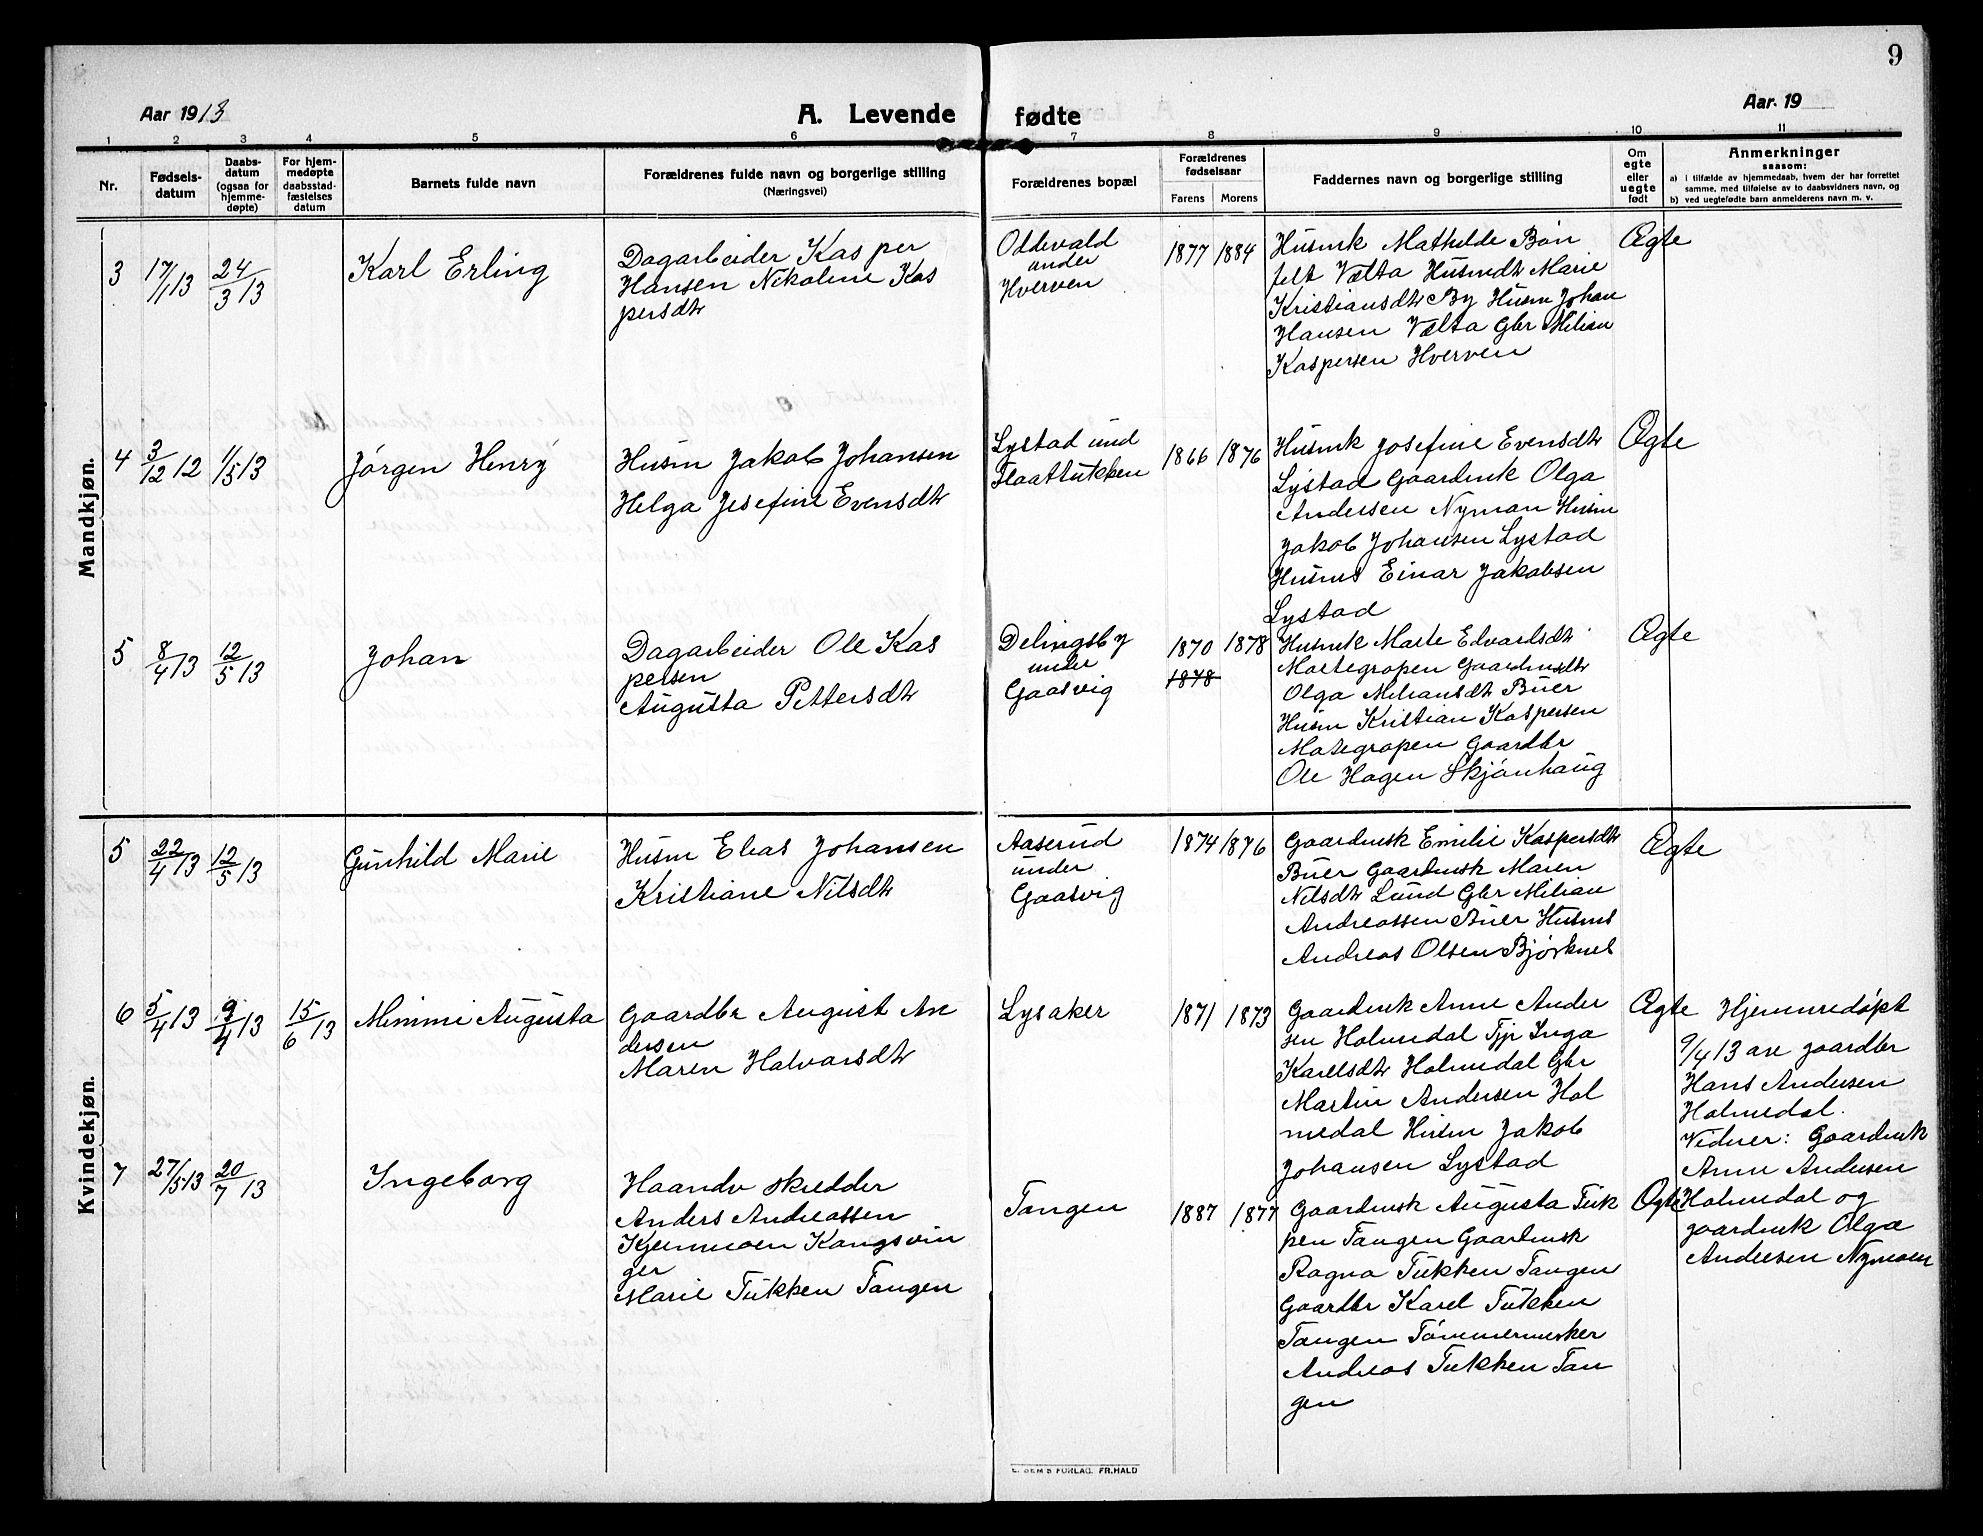 9
Aar 1913
A. Levende fødte
Aar. 19
1 2 3 4 5 6 7 8 9 10 11
Nr.
Fødsels-
datum
Daabs-
datum
(ogsaa for
hjemme-
døpte)
For hjem-
medøpte
daabsstad-
fæstelses
datum
Barnets fulde navn
Forældrenes fulde navn og borgerlige stilling
(Næringsvei)
Forældrenes bopæl
Forældrenes
fødselsaar
Farens Morens
Faddernes navn og borgerlige stilling
Om
egte
eller
uegte
født
Anmerkninger
saasom:
a) i tilfælde av hjemmedaab, hvem der har forrettet
samme, med tilføielse av to daabsvidners navn, og
b) ved uegtefødte barn anmelderens navn m. v.
Mandkjøn.
3 17/1 13 24/3 13 Karl Erling
Dagarbeider Kasper
Hansen Nikoline Kas
persdtr
Oddevald
under
Hverven
1877 1884
Husmk Mathilde Bøn
felt Vælta Husmdtr Marie
Kristiansdtr By Husm Johan
Hansen Vælta Gbr Milian
Kaspersen Hverven
Ægte
4 3/12 12 1/5 13 Jørgen Henry
Husm Jakob Johansen
Helga Josefine Evensdtr
Lystad und
Flaattukken
1866 1876
Husmk Josefine Evensdtr
Lystad Gaardmk Olga
Andersen Nyman Husm
Jakob Johansen Lystad
Husms Einar Jakobsen
Lystad
Ægte
5 8/4 13 12/5 13 Johan
Dagarbeider Ole Kas
persen
Augusta Pettersdtr
Delingsby
under
Gaasvig
1870 1878
1878
Husmk Marte Edvardsdtr
Mortegropen Gaardmdtr
Olga Miliansdtr Buer
Husm Kristian Kaspersen
Motegropen Gaardbr
Ole Hagen Skjønhaug
Ægte
Kvindekjøn.
5 22/4 13 12/5 13 Gunhild Marie
Husm Elias Johansen
Kristiane Nilsdtr
Aaserud
under
Gaasvig
1874 1876
Gaardmsk Emilie Kaspersdtr
Buer Gaardmsk Maren
Nilsdtr Lund Gbr Milian
Andreassen Buer Husms
Andreas Olsen Bjørknes
Ægte
6 5/4 13 9/4 13 15/6 13 Mimmi Augusta
Gaardbr August An
dersen
Maren Halvarsdtr
Lysaker
1871 1873
Gaardmk Anne Ander
sen Holmedal Tjp Inga
Karelsdtr Holmedal Gbr
Martin Andersen Hol
medal Husm Jakob
Johansen Lystad
Ægte
Hjemmedøpt
9/4 13 av gaardbr
Hans Andersen
Holmedal.
Vidner: Gaardmk
Anne Andersen
Holmedal og
gaardmk Olga
Andersen Nymoen
7 27/5 13 20/7 13 Ingeborg
Haandv skrædder
Anders Andreassen
Kjernmoen Kongsvin
ger
Marie Tukken Tangen
Tangen
1887 1877
Gaardmsk Augusta Tuk
ken Tangen Gaardmsk
Ragna Tukken Tangen
Gaardbr Karel Tukken
Tangen Tømmermerker
Andreas Tukken Tan
gen
Ægte
E. SEM'S FORLAG. FR.HALD